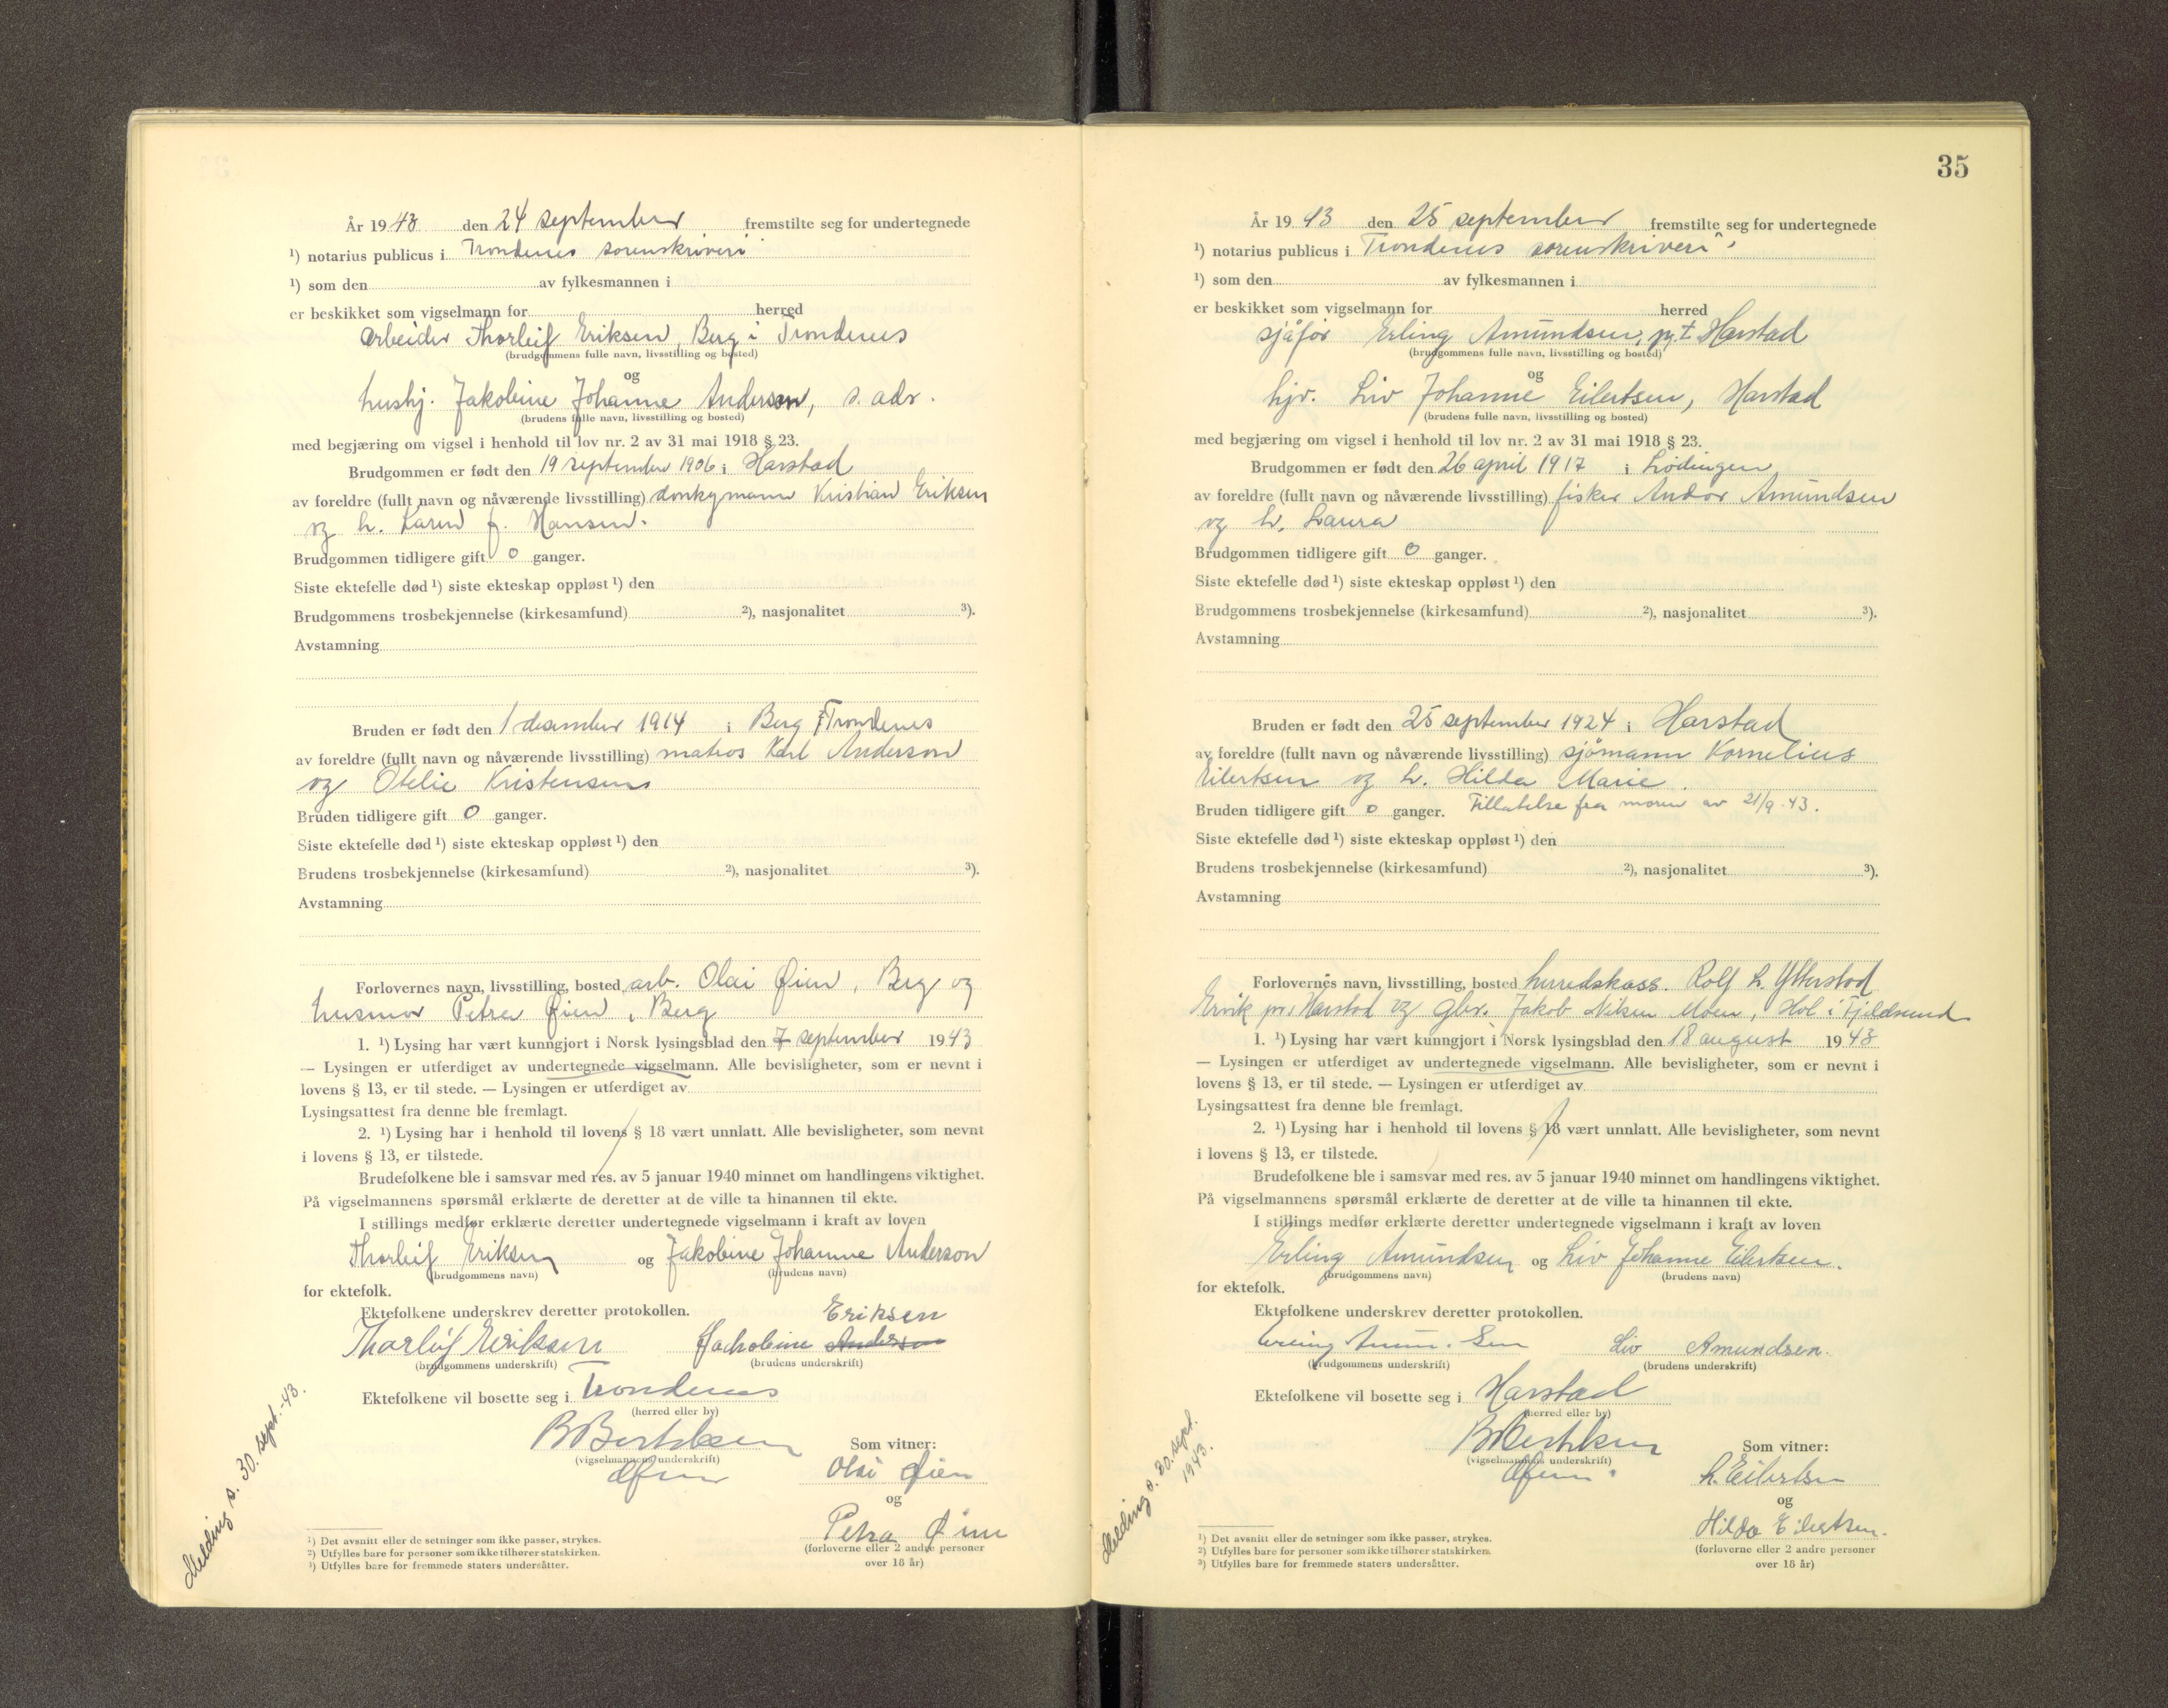 År 1943 den 24 september fremstilte seg for undertegnede
¹) notarius publicus i Trondenes sorenskriveri
¹) som den av fylkesmannen i
er beskikket som vigselmann for herred
arbeider Thorleif Eriksen, Berg i Trondenes
(brudgommens fulle navn, livsstilling og bosted)
og
hushj. Jakobine Johanne Anderson, s. adr.
(brudens fulle navn, livsstilling og bosted)
med begjæring om vigsel i henhold til lov nr. 2 av 31 mai 1918 § 23.
Brudgommen er født den 19 september 1906 i Harstad
av foreldre (fullt navn og nåværende livsstilling) donkymann Kristian Eriksen
og h. Karen f. Hansen.
Brudgommen tidligere gift 0 ganger.
Siste ektefelle død ¹) siste ekteskap oppløst ¹) den
Brudgommens trosbekjennelse (kirkesamfund) ²), nasjonalitet ³).
Avstamning
Bruden er født den 1 desember 1914 i Berg i Trondenes
av foreldre (fullt navn og nåværende livsstilling) matros Karl Anderson
og Otelie Kristensen
Bruden tidligere gift 0 ganger.
Siste ektefelle død ¹) siste ekteskap oppløst ¹) den
Brudens trosbekjennelse (kirkesamfund) ²), nasjonalitet ³).
Avstamning
Forlovernes navn, livsstilling, bosted arb. Olai Øien, Berg og
husmor Petra Øien, Berg
1. ¹) Lysing har vært kunngjort i Norsk lysingsblad den 7 september 1943
— Lysingen er utferdiget av undertegnede vigselmann. Alle bevisligheter, som er nevnt i
lovens § 13, er til stede. — Lysingen er utferdiget av
Lysingsattest fra denne ble fremlagt.
2. ¹) Lysing har i henhold til lovens § 18 vært unnlatt. Alle bevisligheter, som nevnt
i lovens § 13, er tilstede.
Brudefolkene ble i samsvar med res. av 5 januar 1940 minnet om handlingens viktighet.
På vigselmannens spørsmål erklærte de deretter at de ville ta hinannen til ekte.
I stillings medfør erklærte deretter undertegnede vigselmann i kraft av loven
Thorleif Eriksen og Jakobine Johanne Anderson
(brudgommens navn) (brudens navn)
for ektefolk.
Ektefolkene underskrev deretter protokollen. Eriksen
Thorleif Eriksen Jachobine Anderson
(brudgommens underskrift) (brudens underskrift)
Ektefolkene vil bosette seg i Trondenes
(herred eller by)
B Bertelsen Som vitner:
(vigselmannens underskrift)
Olai Øien
og
Petra Øien
(forloverne eller 2 andre personer
over 18 år)
¹) Det avsnitt eller de setninger som ikke passer, strykes.
²) Utfylles bare for personer som ikke tilhører statskirken.
³) Utfylles bare for fremmede staters undersåtter.
Melding s. 30. sept. -43.
35
År 1943 den 25 september fremstilte seg for undertegnede
¹) notarius publicus i Trondenes sorenskriveri
¹) som den av fylkesmannen i
er beskikket som vigselmann for herred
sjåfør Erling Amundsen, p.t. Harstad
(brudgommens fulle navn, livsstilling og bosted)
og
hjv. Liv Johanne Eilertsen, Harstad
(brudens fulle navn, livsstilling og bosted)
med begjæring om vigsel i henhold til lov nr. 2 av 31 mai 1918 § 23.
Brudgommen er født den 26 april 1917 i Lödingen
av foreldre (fullt navn og nåværende livsstilling) fisker Andor Amundsen
og h. Laura
Brudgommen tidligere gift 0 ganger.
Siste ektefelle død ¹) siste ekteskap oppløst ¹) den
Brudgommens trosbekjennelse (kirkesamfund) ²), nasjonalitet ³).
Avstamning
Bruden er født den 25 september 1924 i Harstad
av foreldre (fullt navn og nåværende livsstilling) sjömann Kornelius
Eilertsen og h. Hilda Marie.
Bruden tidligere gift 0 ganger. Tillatelse fra moren av 21/9-43.
Siste ektefelle død ¹) siste ekteskap oppløst ¹) den
Brudens trosbekjennelse (kirkesamfund) ²), nasjonalitet ³).
Avstamning
Forlovernes navn, livsstilling, bosted herredskass. Rolf L. Ytterstad
Ervik pr. Harstad og gbr. Jakob Nilsen Moen, Hol i Tjeldsund
1. ¹) Lysing har vært kunngjort i Norsk lysingsblad den 18 august 1943
— Lysingen er utferdiget av undertegnede vigselmann. Alle bevisligheter, som er nevnt i
lovens § 13, er til stede. — Lysingen er utferdiget av
Lysingsattest fra denne ble fremlagt.
2. ¹) Lysing har i henhold til lovens § 18 vært unnlatt. Alle bevisligheter, som nevnt
i lovens § 13, er tilstede.
Brudefolkene ble i samsvar med res. av 5 januar 1940 minnet om handlingens viktighet.
På vigselmannens spørsmål erklærte de deretter at de ville ta hinannen til ekte.
I stillings medfør erklærte deretter undertegnede vigselmann i kraft av loven
Erling Amundsen og Liv Johanne Eilertsen.
(brudgommens navn) (brudens navn)
for ektefolk.
Ektefolkene underskrev deretter protokollen.
Erling Liv Amundsen.
(brudgommens underskrift) (brudens underskrift)
Ektefolkene vil bosette seg i Harstad
(herred eller by)
B Bertelsen Som vitner:
(vigselmannens underskrift)
K. Eilertsen
og
Hilda Eilertsen.
(forloverne eller 2 andre personer
over 18 år)
¹) Det avsnitt eller de setninger som ikke passer, strykes.
²) Utfylles bare for personer som ikke tilhører statskirken.
³) Utfylles bare for fremmede staters undersåtter.
Melding s. 30. sept.
1943.